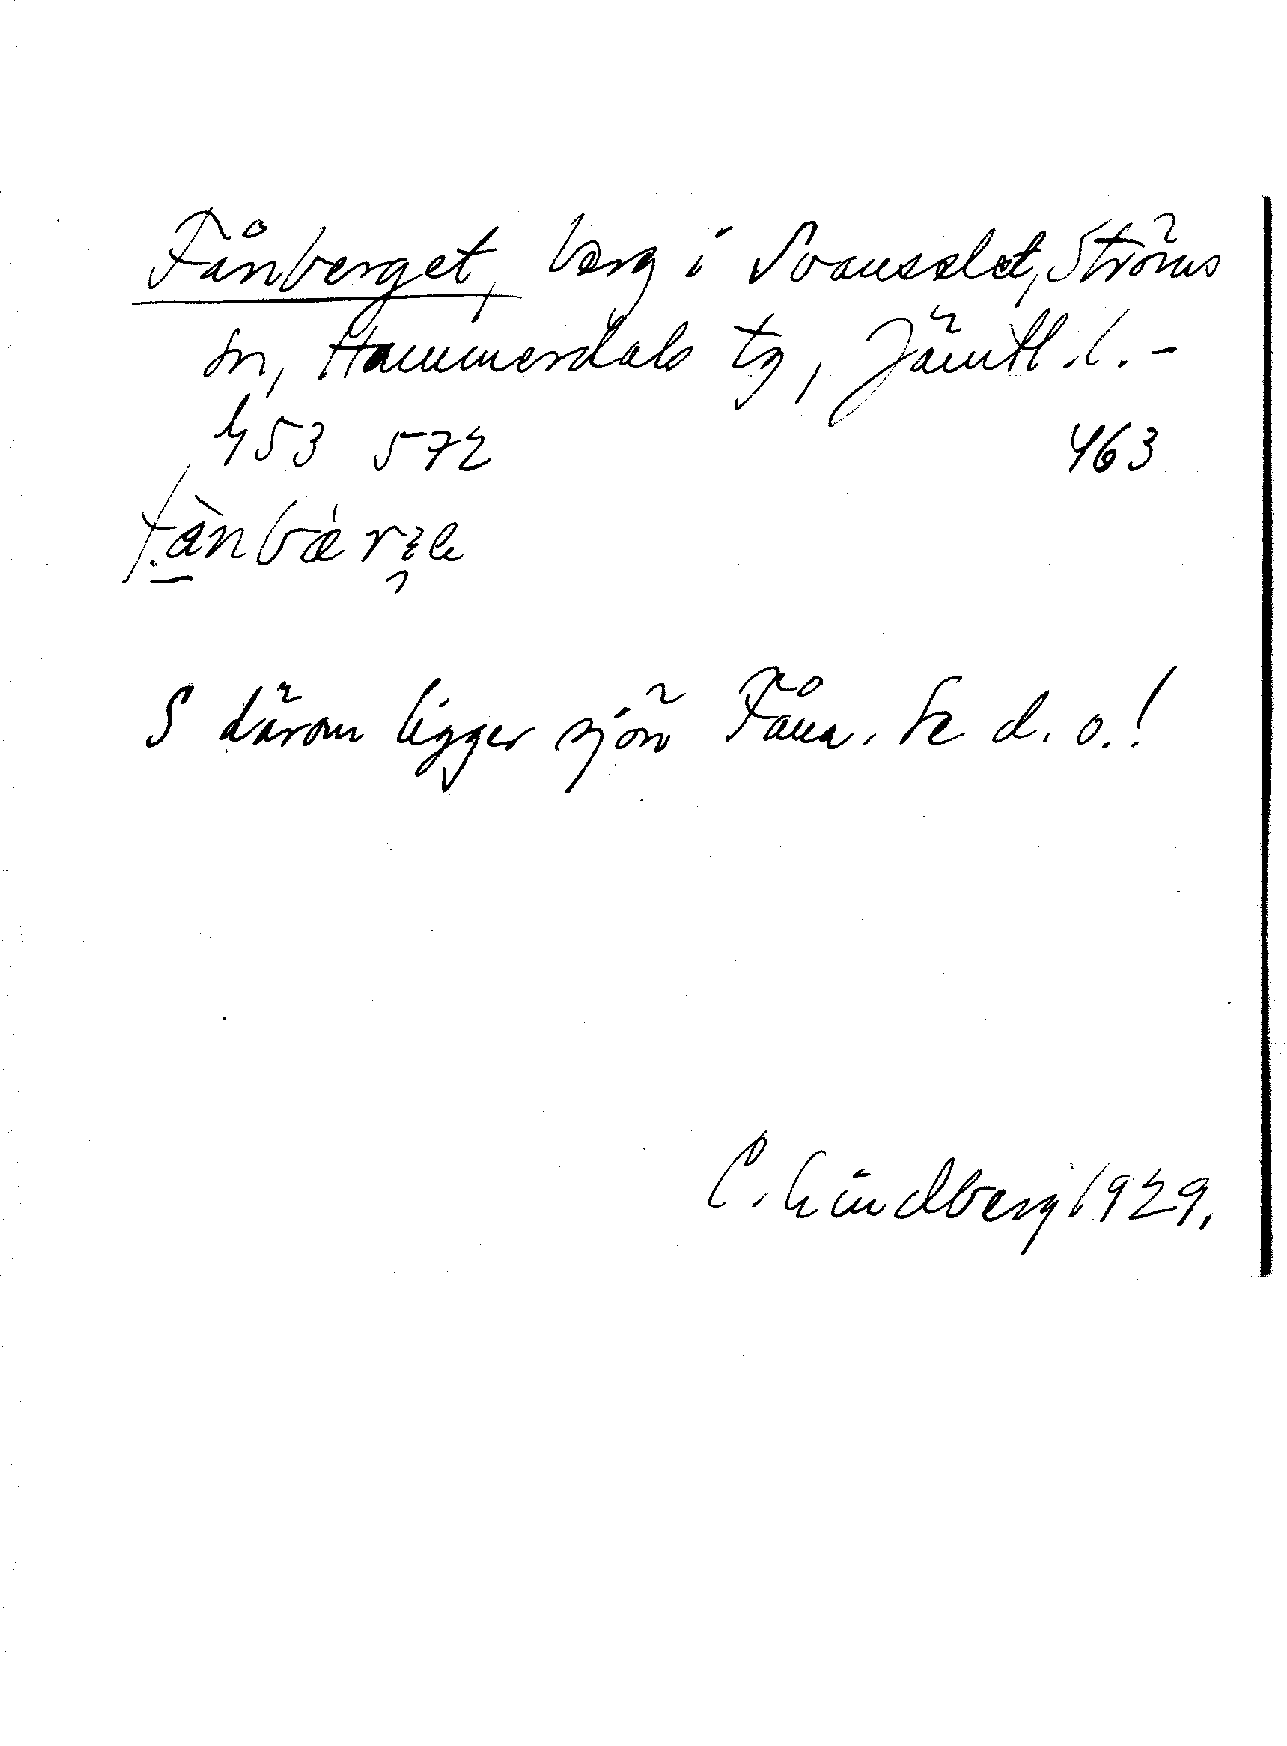 Fånberget, berg i Svanselet, Ströms
sn, Hammerdals tg, Jämtl. l. -
453 572 463
S därom ligger sjön Fåna. Se d. o.!
C. Lindberg 1929.